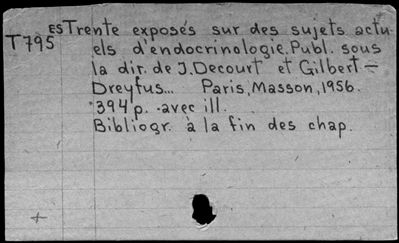 ES Trente exposés sur des sujets actu-
T795 els d'endocrinologie. Publ. sous
la dir. de J. Decourt et Gilbert-
Dreyfus... Paris, Masson, 1956.
394 p. avec ill.
Bibliogr. à la fin des chap.
+